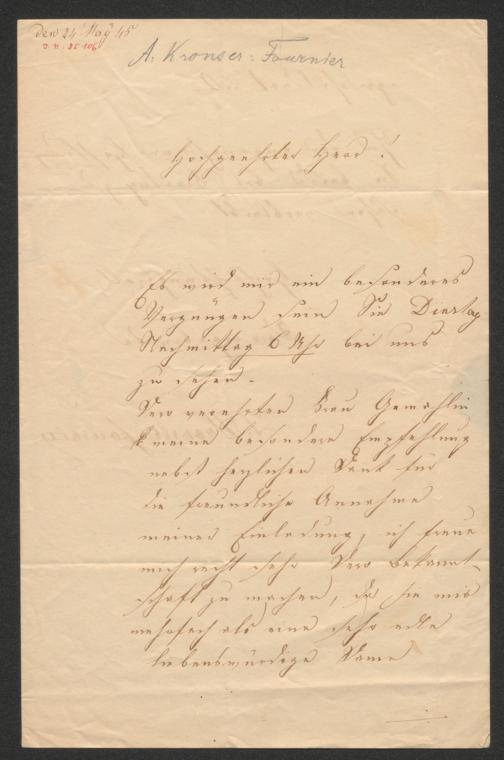 den 24 May 45
J. N. 25 106
A. Kronser: Fournier
Hochgeehrter Herr!
Es wird mir ein besonderes
Vergnügen sein Sie Dienstag
Nachmittag 6 Uhr bei uns
zu sehen.
Dero verehrten Frau Gemahlin
meine besondere Empfehlung
nebst herzlichen Dank für
die freundliche Annahme
meiner Einladung, ich freue
mich recht sehr Dero Bekannt-
schaft zu machen, da sie mir
mehrfach als eine sehr edle
liebenswürdige Dame